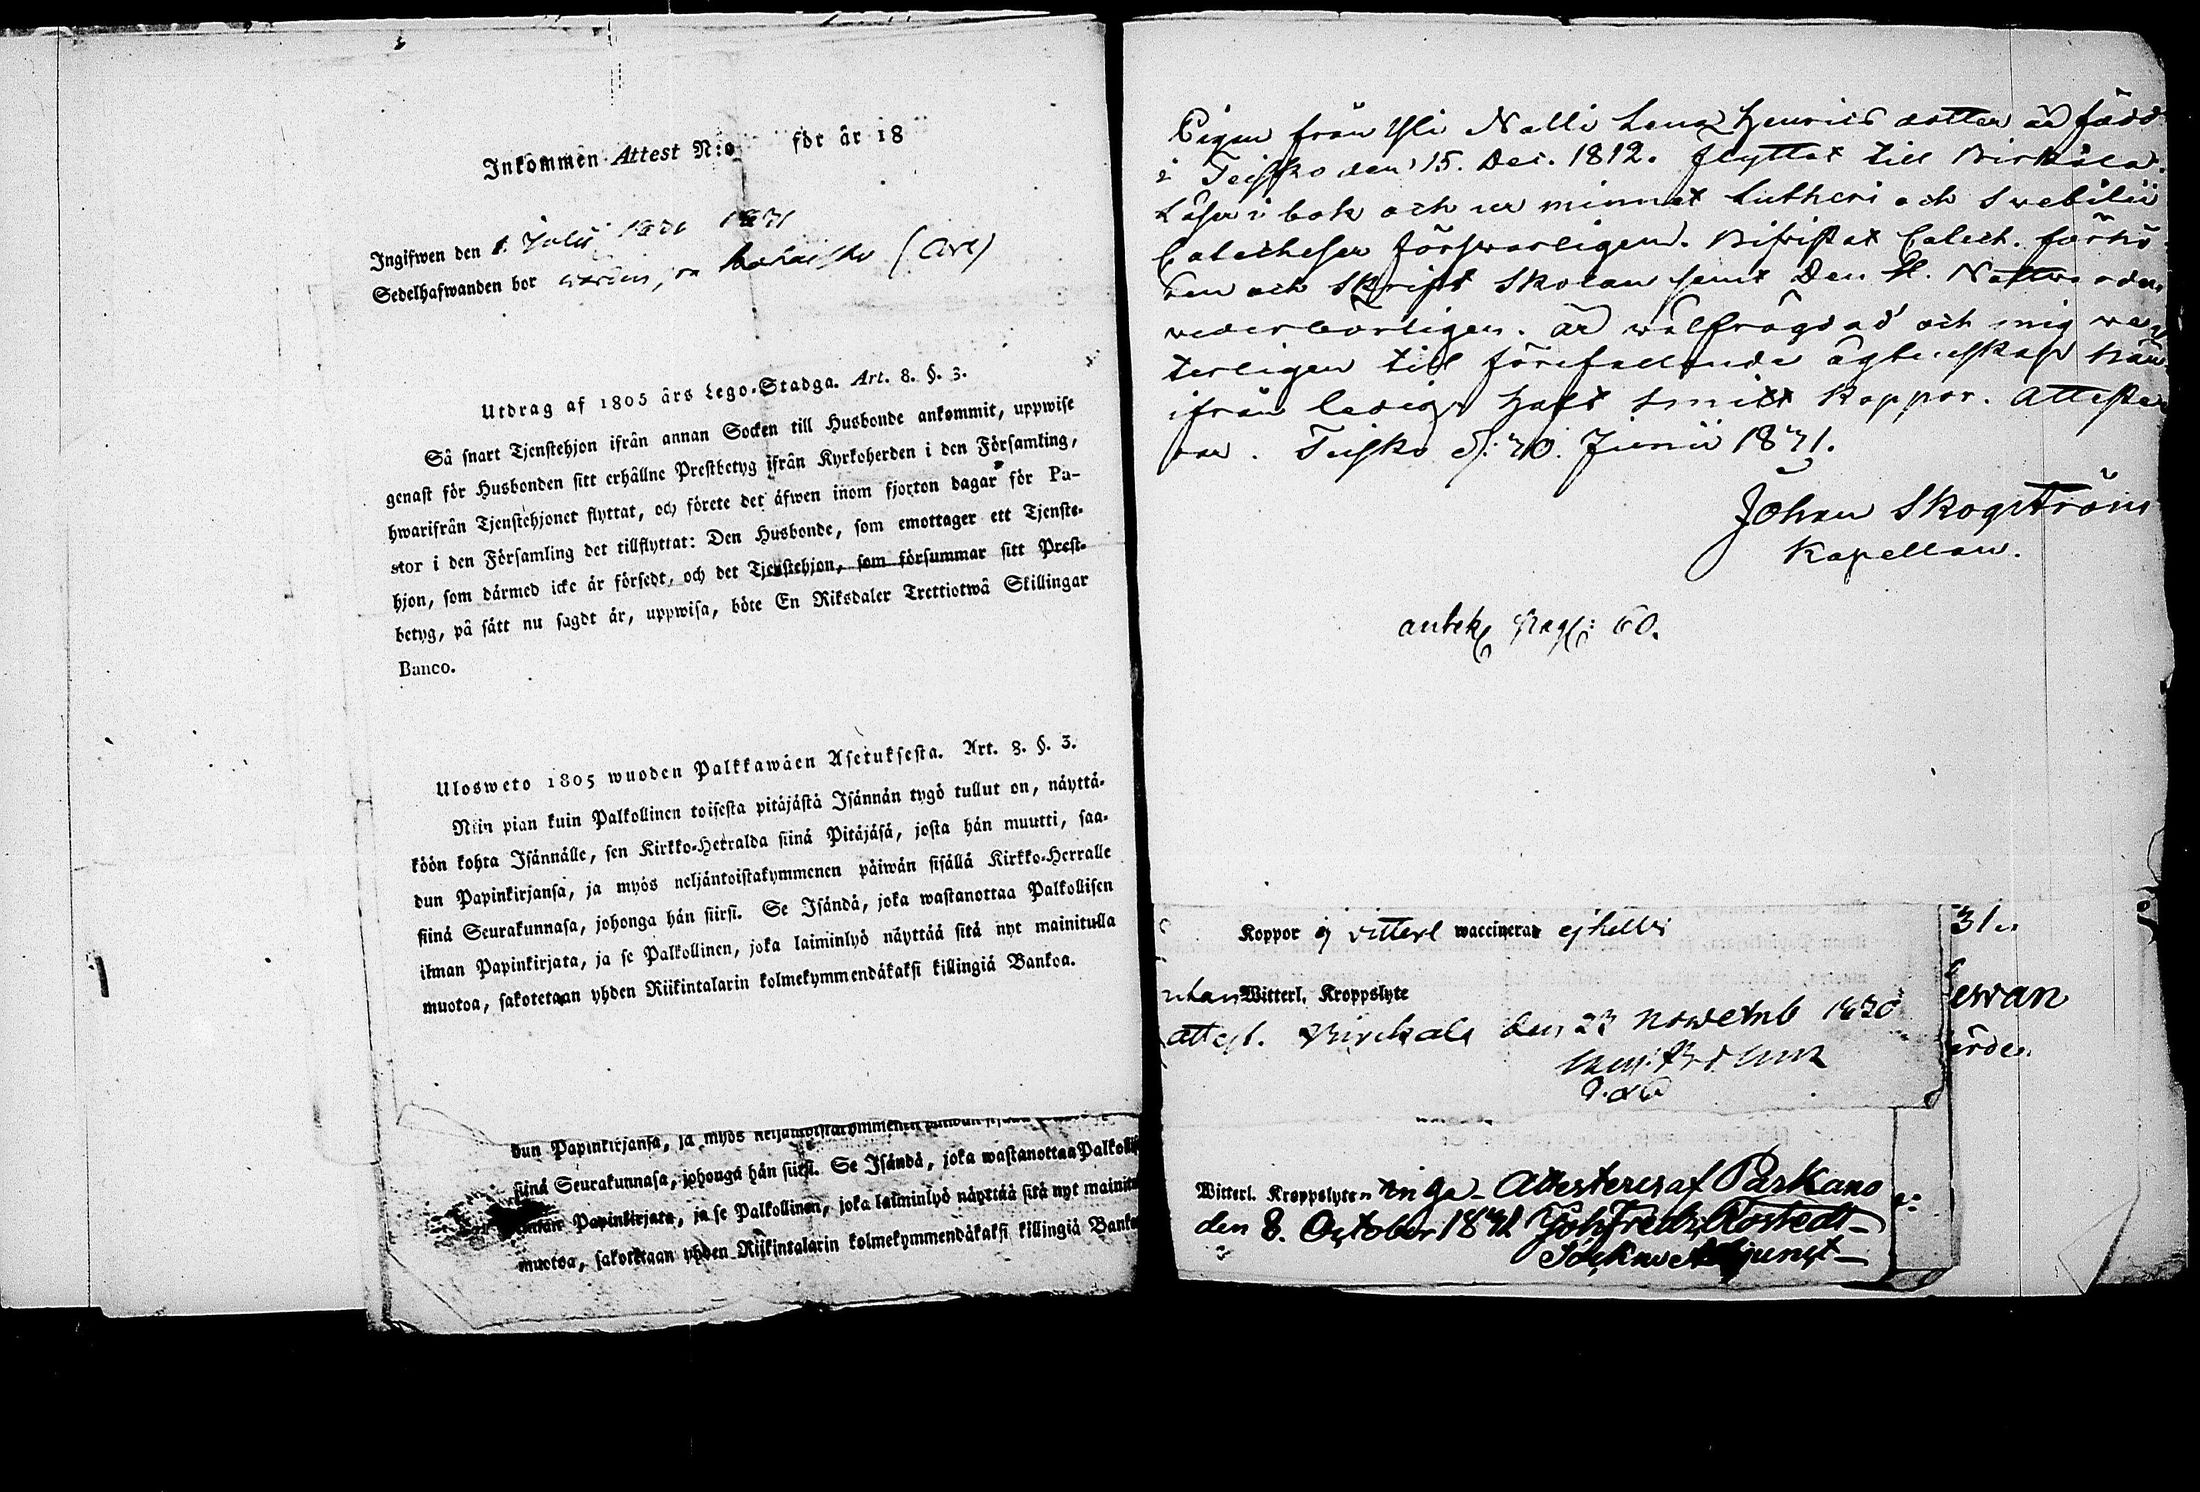 Inkommen Attest N:o för år 18
Ingifwen den 1 Julii 1831
Sedelhafwanden bor
Utdrag af 1805 års Lego-Stadga. Art. 8. §. 3.
Så snart Tjenstehjon ifrån annan Socken till Husbonde ankommit, uppwise
genast för Husbonden sitt erhållne Prestbetyg ifrån Kyrkoherden i den Församling,
hwarifrån Tjenstehjonet flyttat, och förete det äfwen inom fjorton dagar för Pa-
stor i den Församling det tillflyttat: Den Husbonde, som emottager ett Tjenste-
hjon, som därmed icke är försedt, och det Tjenstehjon, som försummar sitt Prest-
betyg, på sätt nu sagdt är, uppwisa, böte En Riksdaler Trettiotwå Skillingar
Banco.
Ulosweto 1805 wuoden Palkkawäen Asetuksesta. Art. 8. §. 3.
Niin pian kuin Palkollinen toisesta pitäjästä Isännän tygö tullut on, näyttä-
köön kohta Isännälle, sen Kirkko-Herralda siinä Pitäjäsä, josta hän muutti, saa-
dun Papinkirjansa, ja myös neljäntoistakymmenen päiwän sisällä Kirkko-Herralle
siinä Seurakunnasa, johonga hän siirsi. Se Isändä, joka wastanottaa Palkollisen
ilman Papinkirjata, ja se Palkollinen, joka laiminlyö näyttää sitä nyt mainitulla
muotoa, sakotetaan yhden Riikintalarin kolmekymmendäkaksi killingiä Bankoa.
dun Papinkirjansa, ja myös neljäntoistakymmenen
siinä Seurakunnasa, johonga hän siirsi. Se Isändä, joka wastanottaa Palkolli
ilman Papinkirjata, ja se Palkollinen, joka laiminlyö näyttää sitä nyt mainitu
muotoa, sakotetaan yhden Riikintalarin kolmekymmendäkaksi killingiä Banko
Pigan från Yli Nalli Lena Henrics dotter är född
i Teisko den 15. Dec. 1812. flyttat till Birkala.
Läser i bok och ur minnet Lutheri och Swebilii
Catecheser förswarligen. Biwistat Catech. förhö-
ren och Skrift Skolan samt Den H. Nattwarden
wederbörligen. är wälfrägdad och mig we-
terligen till förefallande ägtenskap här-
ifrån ledig. haft Smitt koppor. Atteste-
rar. Teisko d: 30. Junii 1831.
Johan Skogström
Kapellan.
antek. pag: 60.
Koppor ej vitterl waccinerad ej heller
utan Witterl. Kroppslyte
attest. Birckala den 23 Nowemb 1830
31.
ewan
örden
Witterl. Kroppslyten inga Attesteres af Parkano
den 8. October 1831 Joh Fredr. Rostedt
Sockne Adjunct